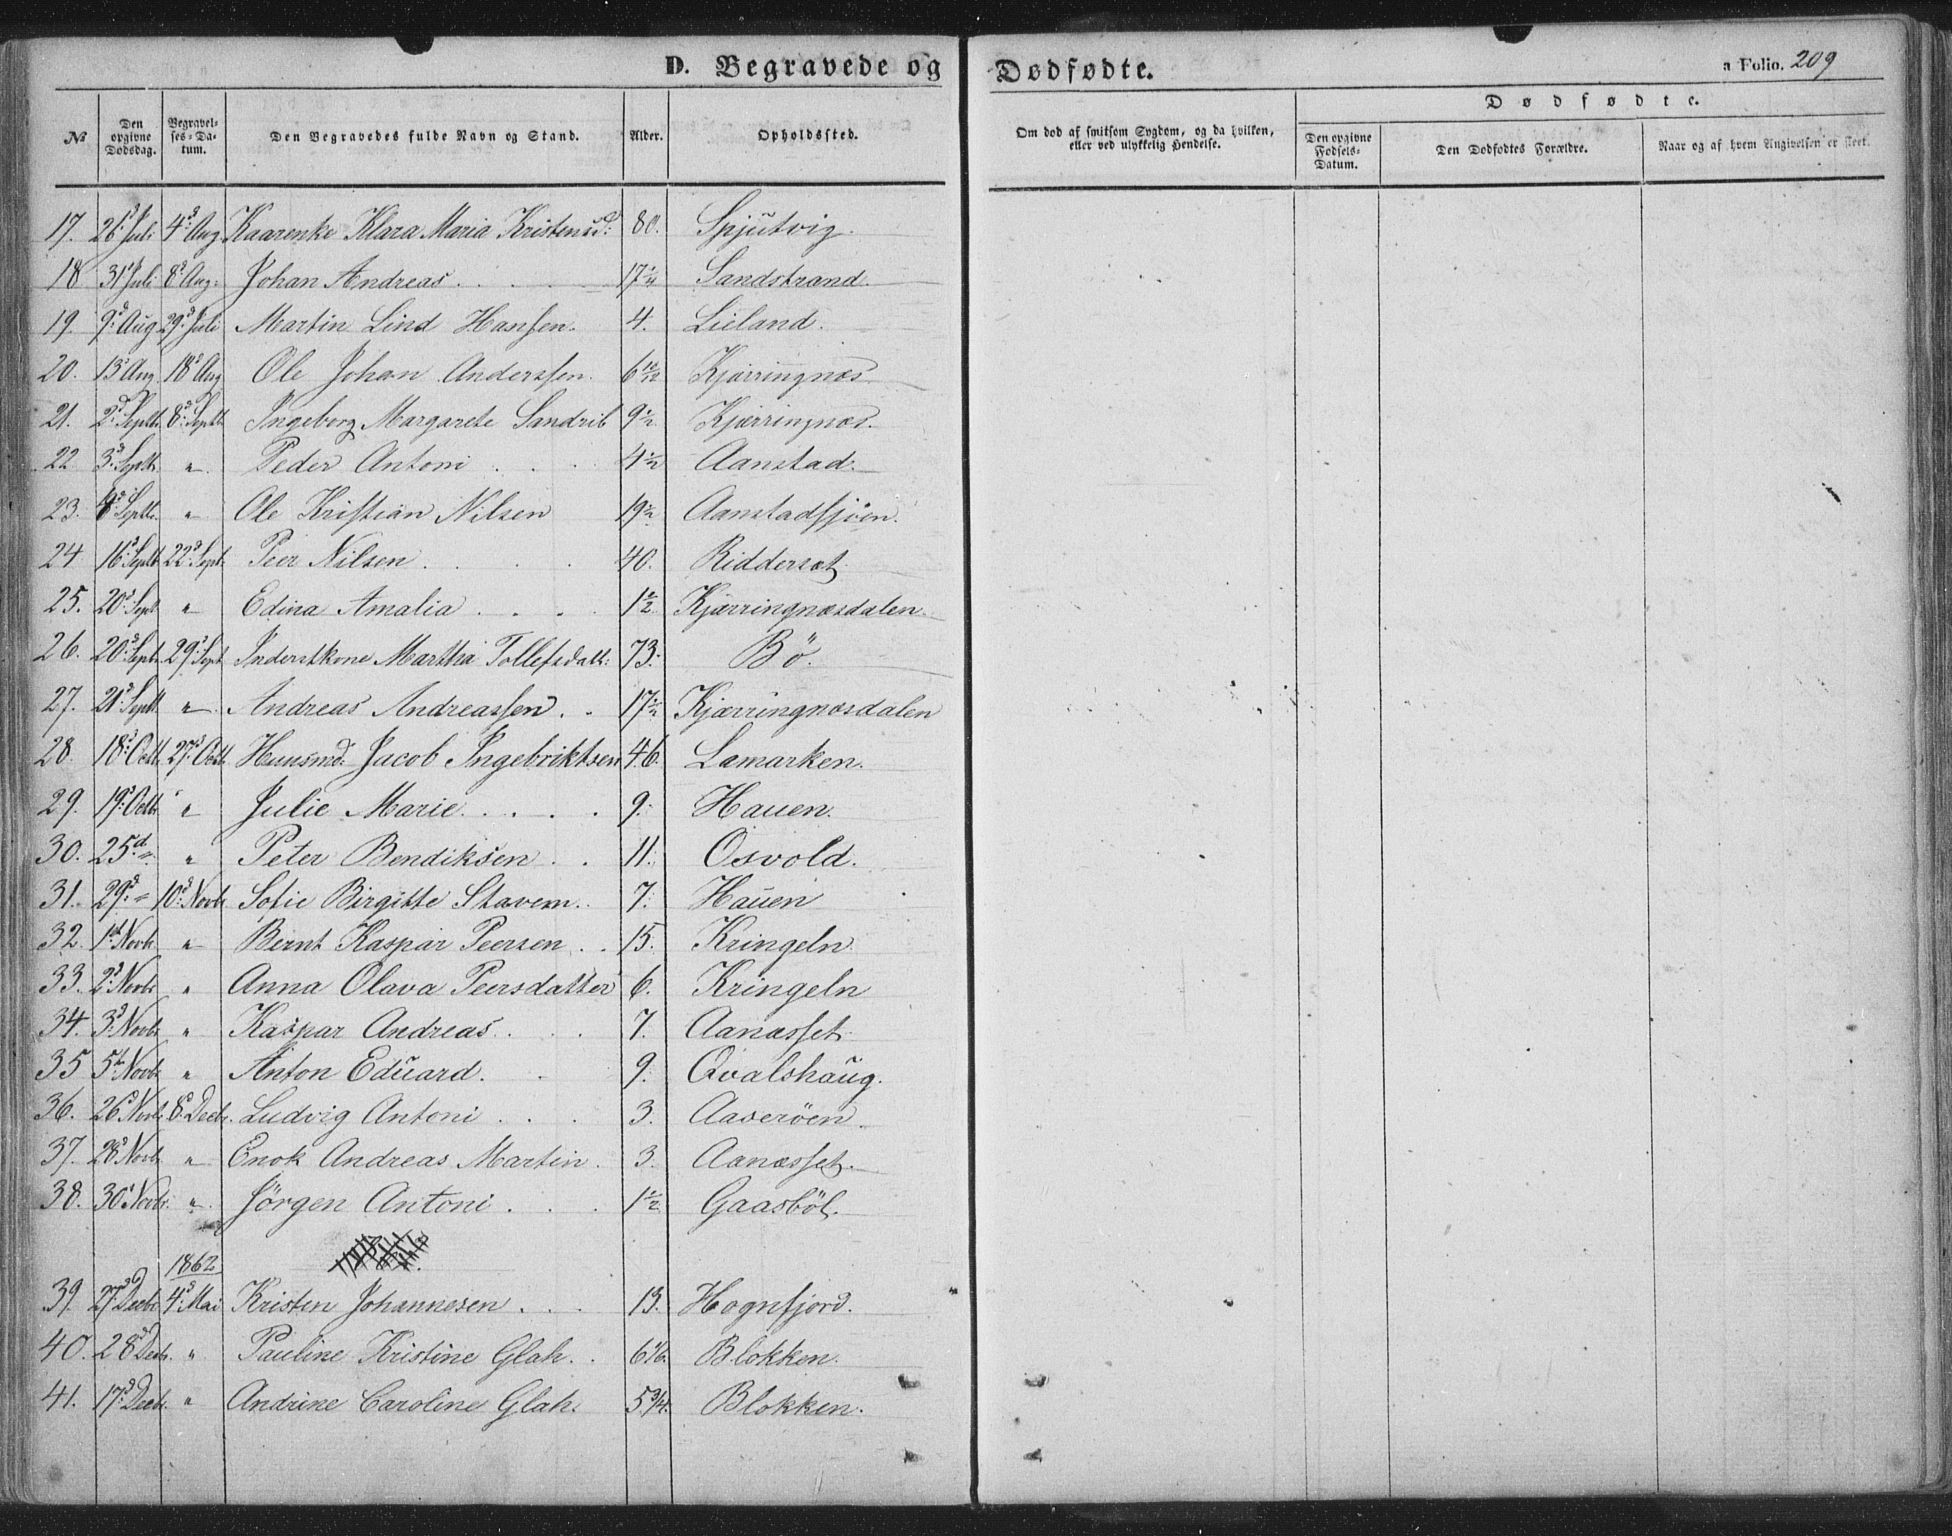 D. Begravede og Dødfødte. a Folio. 209
№ Den opgivne Dødsdag. Begravelses-Datum. Den Begravedes fulde Navn og Stand. Alder. Opholdssted. Om død af smitsom Sygdom, og da hvilken, eller ved ulykkelig Hendelse. Dødfødte. Den opgivne Fødsels-Datum. Den Dødfødtes Forældre. Naar og af hvem Angivelsen er skeet.
17. 26d Juli 4d Aug Kaarenke Klara Maria Kristensd: 80. Spjutvig.
18 31 Juli 8d Aug: Johan Andreas 17 Sandstrand.
19. 9d Aug 29d Juli Martin Lind Hansen. 4. Lieland.
20. 13 Aug 18d Aug Ole Johan Anderssen. 6 10/12 Kjørringnæs
21. 2d Septb 8d Septb Ingeborg Margarete Sandvib 9 1/2 Kjørringnæs.
22 3d Septb " Peder Antoni 4 1/2 Aanstad.
23. Septb. " Ole Kristian Nilsen 19 1/2 Aanstadsjöen.
24 16d Septb 22d Sept Peer Nilsen 40. Ridderset
25. 20d Sept " Edina Amalia 1 1/2 Kjærringnæsdalen.
26. 20d Septb. 29d Sept Inderstkone Martha Tollefsdatt: 73. Bö.
27. 21d Septb " Andreas Andreassen 17 1/2 Kjærringnæsdalen
28. 18d Octb. 27d Octb Huusmd: Jacob Ingebriktsen 46. Lamarken.
29. 19d Octb " Julie Marie 9. Hauen.
30. 25d " " Peter Bendiksen 11. Osvold.
31. 29d " 10d Novb Sofie Birgitte Stavem. 7. Hauen
32. 1st Novb " Bernt Kaspar Peersen 15. Kringeln
33. 2d Novb " Anna Olava Peersdatter 6. Kringeln
34. 3d Novb " Kaspar Andreas 7. Aanæsset
35 5t Novb " Anton Eduard. 9. Qvalshaug.
36. 26d Novb. 8d Decb. Ludvig Antoni 3. Aaseröen.
37. 28d Novb " Enok Andreas Martin. 3. Aanæsset.
38. 30d Novb. " Jörgen Antoni 1 1/2 Gaasböl.
1862
39. 27d Decb 4d Mai Kristen Johannesen 13. Hognfjord.
40. 28d Decb. " Pauline Kristine Glah. 6 1/6. Blokken.
41. 17d Decb. " Andrine Caroline Glah. 5 3/4. Blokken.